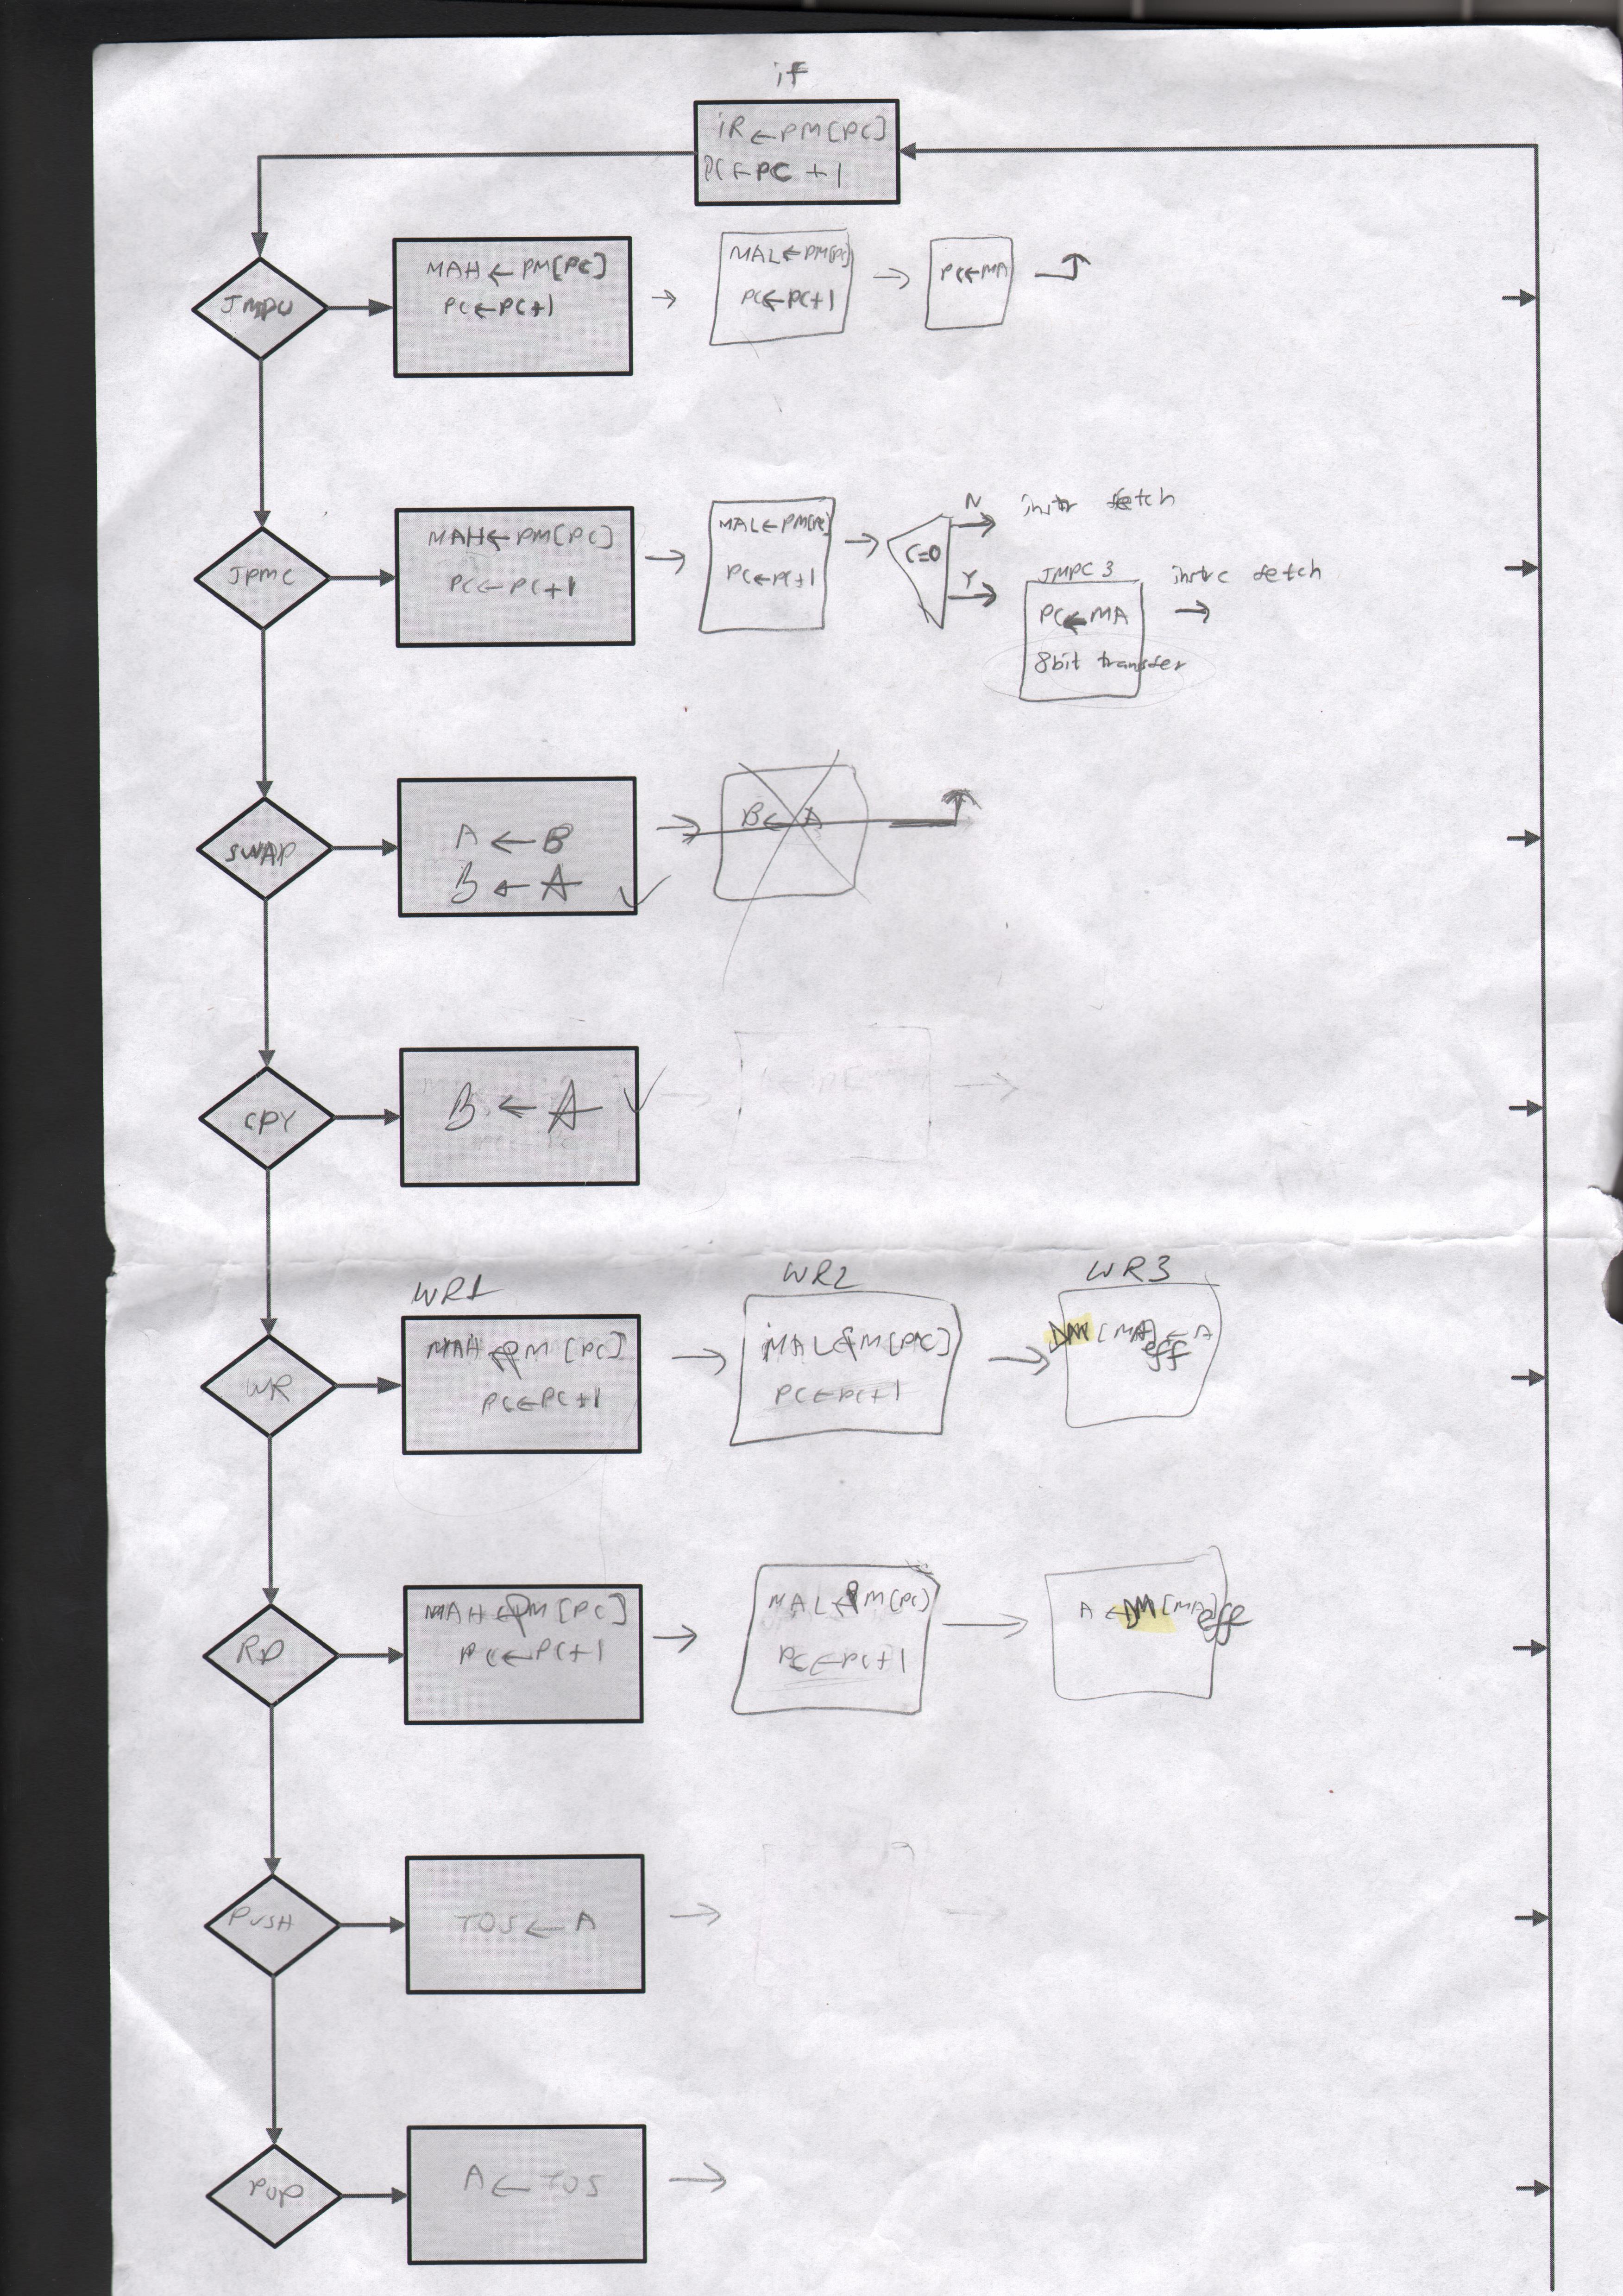 if
IR ← PM[PC]
PC ← PC +1
JMPU
MAH ← PM[PC]
PC ← PC+1
MAL ← PM[PC]
PC ← PC+1
PC ← MA
JPMC
MAH ← PM[PC]
PC ← PC+1
MAL ← PM[PC]
PC ← PC+1
C=0
N
instr fetch
Y
JMPC 3
PC ← MA
8bit transfer
instrc fetch
SWAP
A ← B
B ← A
B ← A
CPY
B ← A
WR
WR1
MAH ← PM [PC]
PC ← PC+1
WR2
MAL ← PM[PC]
PC ← PC+1
WR3
DM [MA] ← A
eff
RD
MAH ← PM [PC]
PC ← PC+1
MAL ← PM[PC]
PC ← PC+1
A ← DM [MA] eff
PUSH
TOS ← A
POP
A ← TOS